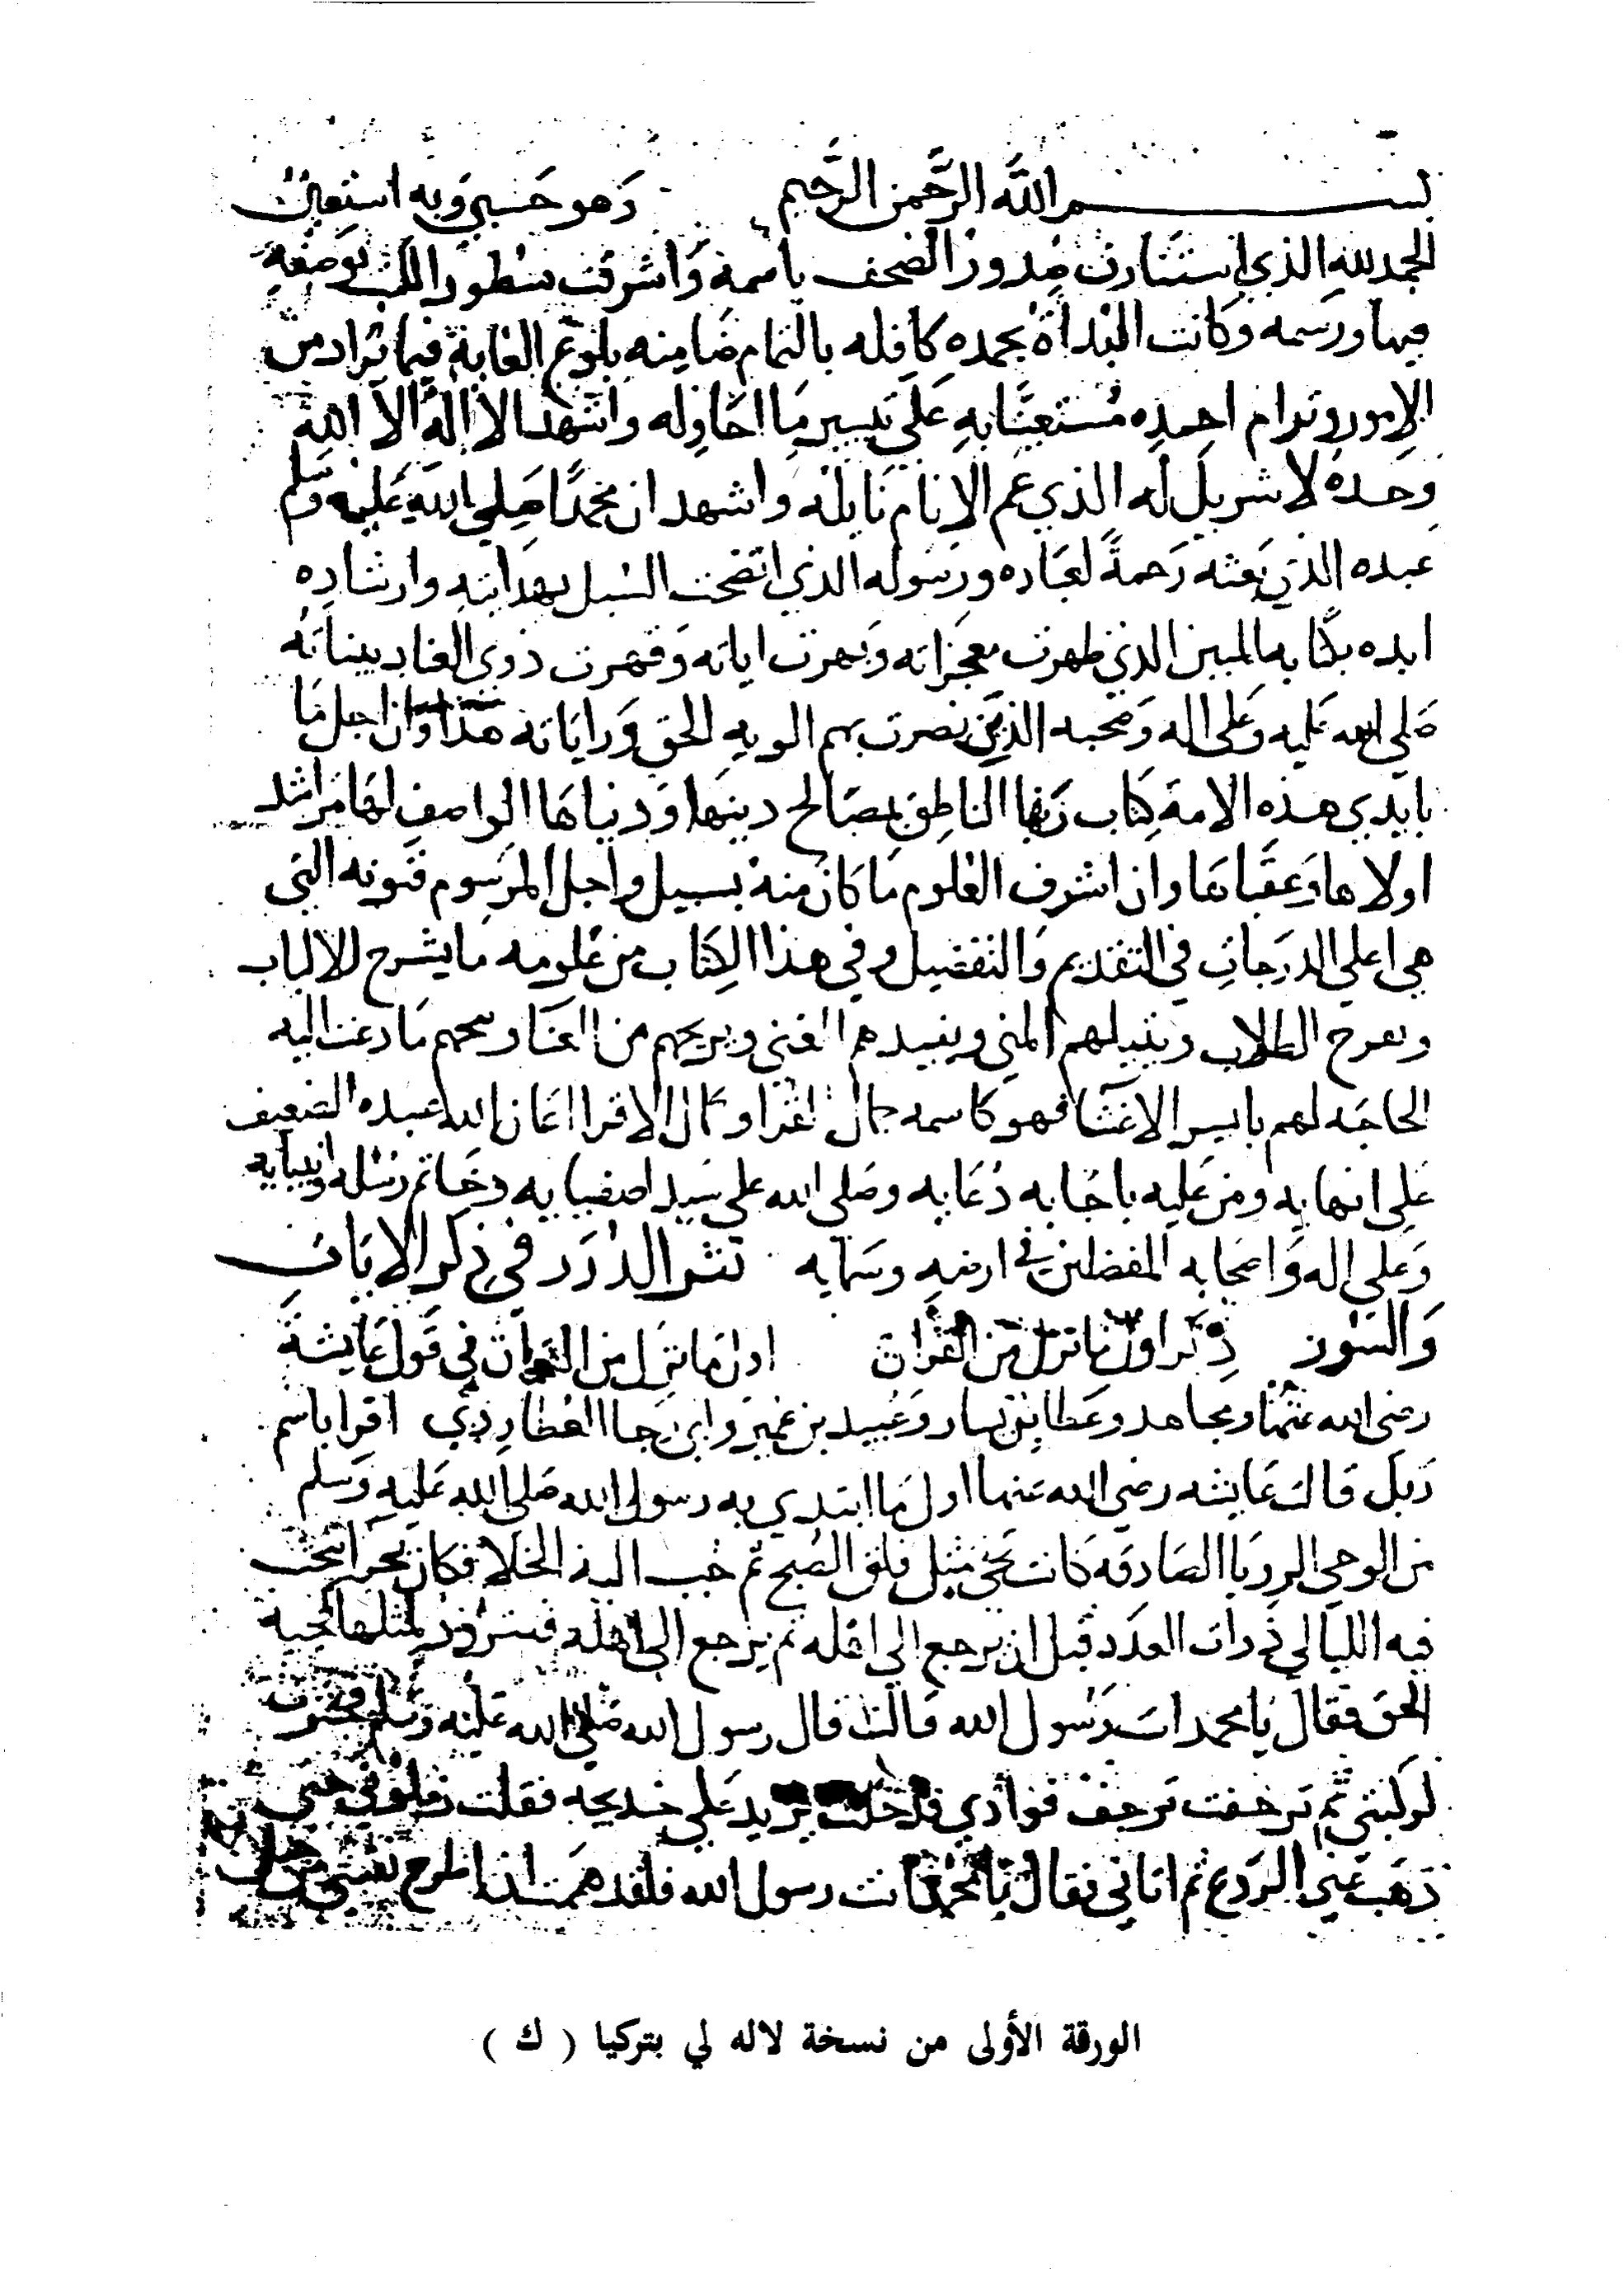 بسم الله الرحمن الرحيم وهو حسبي وبه استعين
الحمد لله الذي استنارت صدور الصحف باسمه وَاشرقت سطور الكتب بوصفه
فيها ورسمه وكانت البدأة بحمده كافله بالتمام ضامنه بلوغ الغاية فيما يراد من
الامور ويرام احمده مستعينا به على تيسير ما احاوله واشهد الا اله الا الله
وحده لا شريك له الذي عم الانام نايله واشهد ان محمدًا صلي الله عليه وسلم
عبده الذي بعثه رحمةً لعباده ورسوله الذي اتضحت السبل بهدايته وارشاده
ايده بكتابه المبين الذي ظهرت معجزاته وبهرت اياته وقهرت ذوي العناد بيناته
صلي الله عليه وعلى اله وصحبه الذين نصرت بهم الويه الحق وراياته هذا وان اجل ما
بايدي هذه الامة كتاب ربها الناطق بمصالح دينها ودنياها الواصف لها مراشد
اولاها وعقباها وان اشرف العلوم ما كان منه بسبيل واجل المرسوم فنونه التي
هي اعلي الدرجات في التقديم والتفضيل وفي هذا الكتاب من علومه ما يشرح الالباب
ويفرح الطلاب وينيلهم المني ويفيدهم الغنى ويريحهم من العنا ويمنحهم ما دعت اليه
الحاجه لهم بايسر الاعتنا فهو كاسمه جمال القرا وكمال الاقرا اعان الله عبده الضعيف
علي انهايه ومن عليه باجابه دعايه وصلى الله علي سيد اصفيايه وخاتم رسله وانبيايه
وعلي اله واصحابه المفضلين في ارضه وسمايه نثر الدرر في ذكر الايات
والسور ذكر اول ما نزل من القران اول ما نزل من القران في قول عايشة
رضى الله عنها ومجاهد وعطا بن يسار وعبيد بن عمير وابي رجا العطاردي اقرا باسم
ربك قالت عايشه رضي الله عنها اول ما ابتدي به رسول الله صلى الله عليه وسلم
من الوحي الرويا الصادقه كانت تجي مثل فلق الصبح ثم حبب اليه الخلا فكان بحرا يتحنث
فيه الليالي ذوات العدد قبل ان يرجع الي اهله ثم يرجع الى اهله فيتزود لمثلها فجيه
الحق فقال يا محمد انت رسول الله قالت قال رسول الله صلى الله عليه وسلم فجثوت
لركبتي ثم ترجف فوادي فدخلت علي خديجه فقلت زملوني حتي
ذهب عني الروع ثم اتاني فقال يا محمد انت رسول الله فلقد هممت ان اطرح نفسي من
الورقة الأولى من نسخة لاله لي بتركيا ( ك )